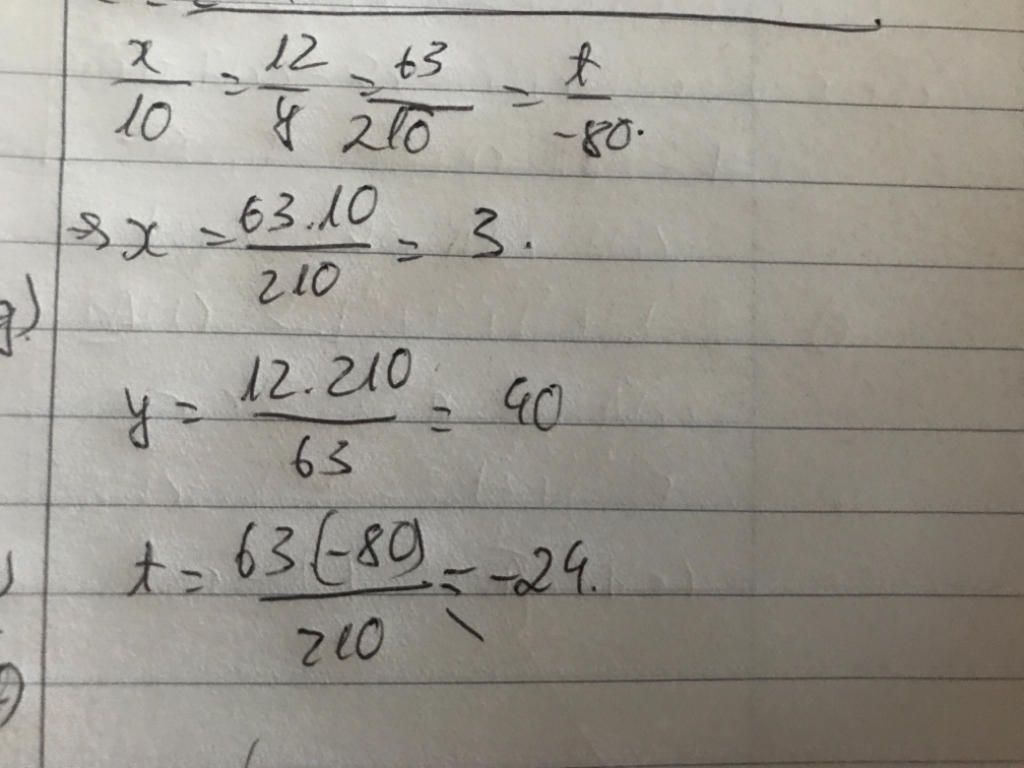 x/10 = 12/y = 63/210 = t/-80.
⇒ x = 63.10/210 = 3.
g)
y = 12.210/63 = 40
t = 63(-80)/210 = -24.